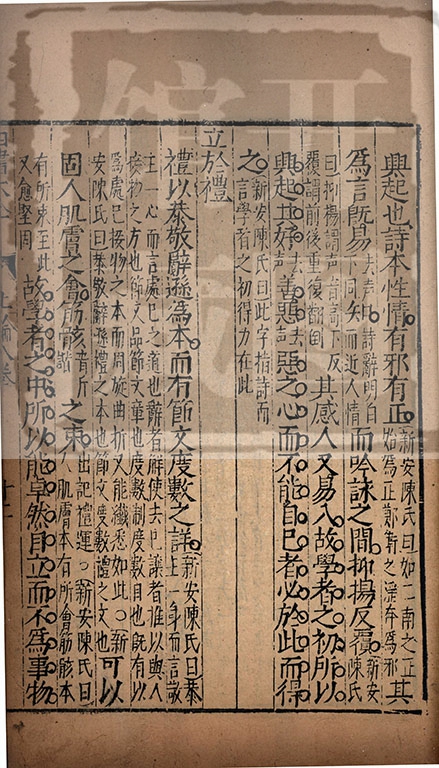 興起也詩本性情有邪有正新安陳氏曰如二南之正始為正鄭衛之淫奔為邪其
為言既易去聲下同詩辭明白知而近人情而吟詠之間抑揚反覆新安陳氏
曰抑揚謂聲音高下反覆謂前後重復翻倒其感人又易入故學者之初所以
興起其好去聲善惡去聲惡之心而不能自已者必於此而得
之新安陳氏曰此字指詩而言學者之初得力在此
立於禮
禮以恭敬辭遜為本而有節文度數之詳新安陳氏曰恭主一身而言敬
主一心而言處己之道也辭者解使去己讓者推以與人接物之方也節文品節文章也度數制度數目也既有以
為處己接物之本而周旋曲折又能纖悉如此○新安陳氏曰恭敬辭遜禮之本也節文度數禮之文也可以
固人肌膚之會筋骸之束出記禮運○新安陳氏曰人肌膚本有所會筋骸本
有所束至此又愈堅固故學者之中所以能卓然自立而不為事物